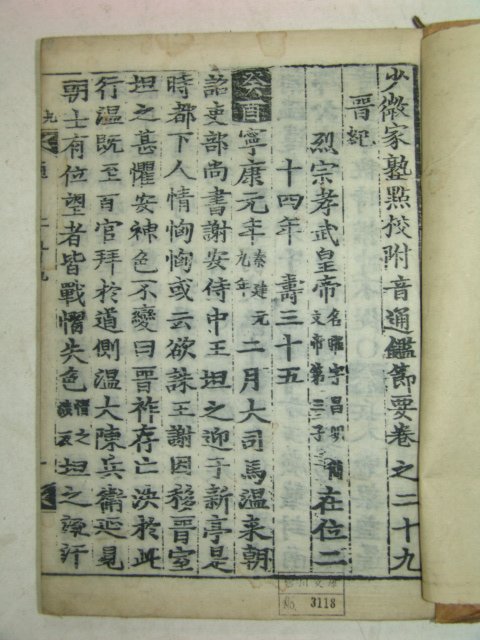 少微家塾點校附音通鑑節要卷之二十九
晉紀
烈宗孝武皇帝名曜字昌明簡文帝第三子在位二
十四年壽三十五
癸酉寧康元年秦建元九年二月大司馬溫来朝
詔吏部尚書謝安侍中王坦之迎于新亭是
時都下人情恟恟或云欲誅王謝因移晉室
坦之甚懼安神色不變曰晉祚存亡決於此
行溫既至百官拜於道側溫大陳兵衛延見
朝士有位望者皆戰慴失色慴之涉反坦之流汗
九
二十九
3118